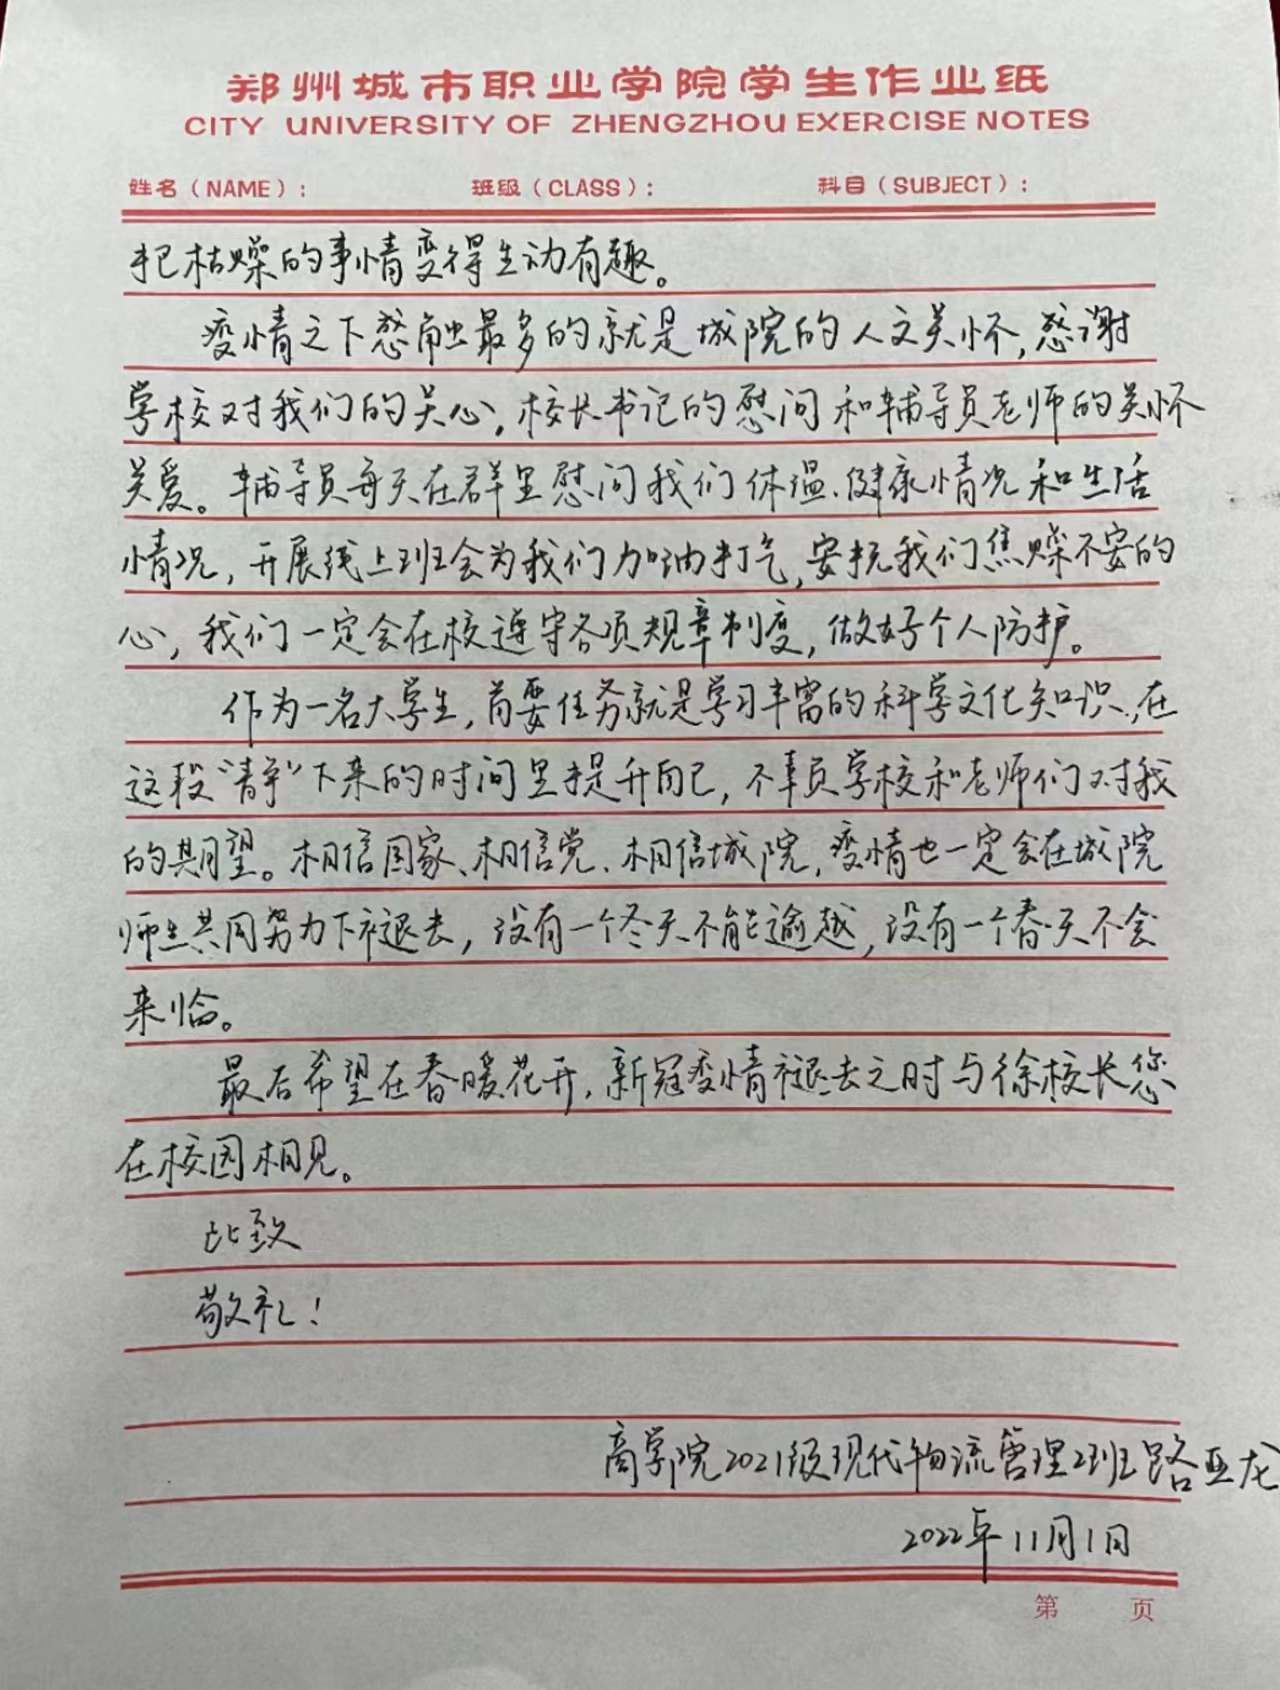 郑州城市职业学院学生作业纸
CITY UNIVERSITY OF ZHENGZHOU EXERCISE NOTES
姓名(NAME): 班级(CLASS): 科目(SUBJECT):
把枯燥的事情变得生动有趣。
疫情之下感触最多的就是城院的人文关怀,感谢
学校对我们的关心,校长书记的慰问和辅导员老师的关怀
关爱。辅导员每天在群里慰问我们体温、健康情况和生活
情况,开展线上班会为我们加油打气,安抚我们焦燥不安的
心,我们一定会在校遵守各项规章制度,做好个人防护。
作为一名大学生,首要任务就是学习丰富的科学文化知识,在
这段“静”下来的时间里提升自己,不辜负学校和老师们对我
的期望。相信国家、相信党、相信城院,疫情也一定会在城院
师生共同努力下褪去,没有一个冬天不能逾越,没有一个春天不会
来临。
最后希望在春暖花开,新冠疫情褪去之时与徐校长您
在校园相见。
此致
敬礼!
商学院2021级现代物流管理2班路亚龙
2022年11月1日
第 页